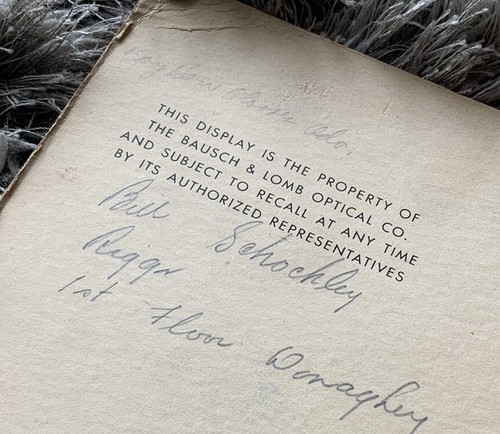 THIS DISPLAY IS THE PROPERTY OF
THE BAUSCH & LOMB OPTICAL CO.
AND SUBJECT TO RECALL AT ANY TIME
BY ITS AUTHORIZED REPRESENTATIVES
Bill Schockley
Riggs
1st Floor Donaghey